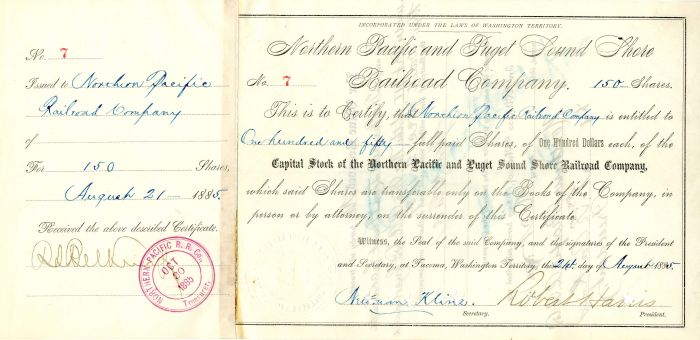 No. 7
Issued to Northern Pacific
Railroad Company
of
For 150 Shares,
August 21 1885.
Received the above described Certificate.
NORTHERN PACIFIC R. R. Co.
OCT
20
1885
INCORPORATED UNDER THE LAWS OF WASHINGTON TERRITORY.
Northern Pacific and Puget Sound Shore
No. 7 Railroad Company. 150 Shares.
This is to Certify, that Northern Pacific Railroad Company is entitled to
One hundred and fifty full paid Shares, of One Hundred Dollars each, of the
Capital Stock of the Northern Pacific and Puget Sound Shore Railroad Company,
which said Shares are transferable only on the Books of the Company, in
person or by attorney, on the surrender of this Certificate.
Witness, the Seal of the said Company, and the signatures of the President
and Secretary, at Tacoma, Washington Territory, the 21st day of August 1885.
Newman Kline Robert Harris
Secretary. President.